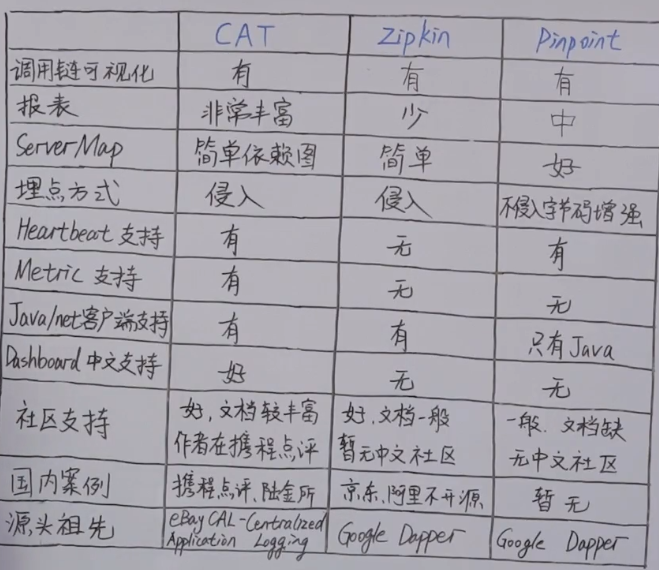 CAT Zipkin Pinpoint
调用链可视化 有 有 有
报表 非常丰富 少 中
ServerMap 简单依赖图 简单 好
埋点方式 侵入 侵入 不侵入字节码增强
Heartbeat支持 有 无 有
Metric支持 有 无 无
Java/net客户端支持 有 有 只有Java
Dashboard中文支持 好 无 无
社区支持 好,文档较丰富 作者在携程点评 好,文档一般 暂无中文社区 一般、文档缺 无中文社区
国内案例 携程点评、陆金所 京东、阿里不开源 暂无
源头祖先 eBay CAL-Centralized Application Logging Google Dapper Google Dapper